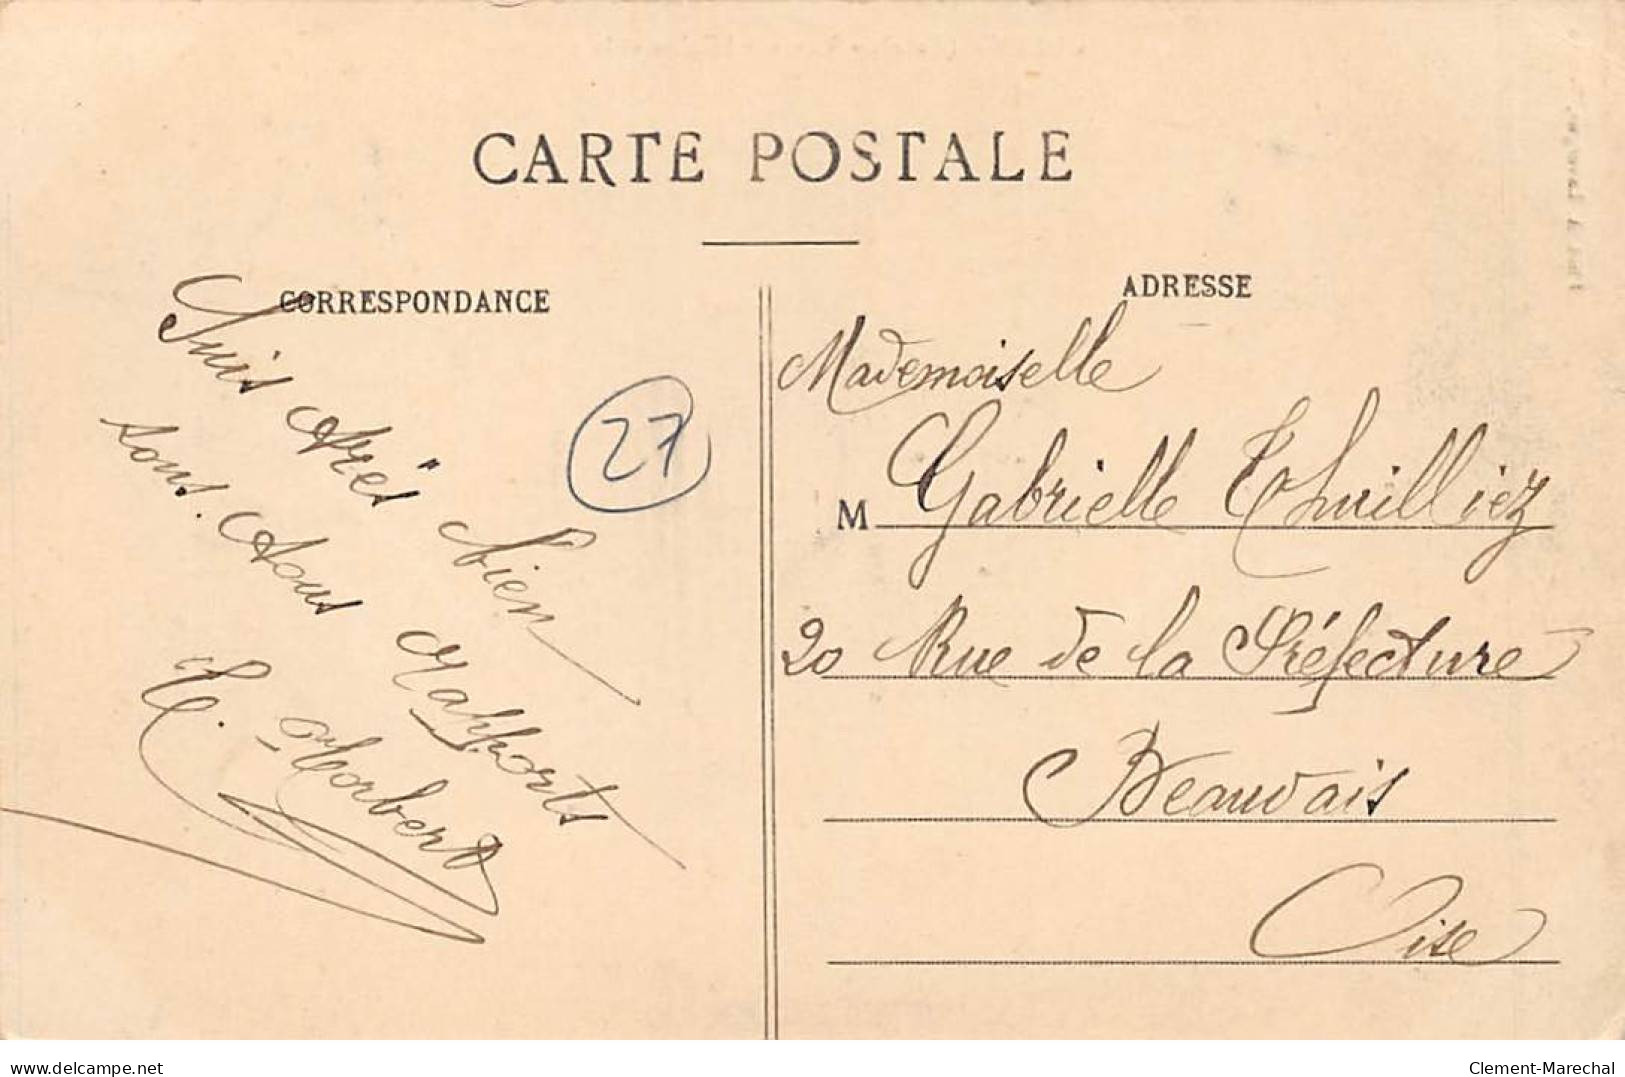 CARTE POSTALE
CORRESPONDANCE
Suis très bien
sous tous rapports
H. Morbert
27
ADRESSE
Mademoiselle
M Gabrielle Thuilliez
20 Rue de la Préfecture
Beauvais
Oise
delcampe.net
Clement-Marechal